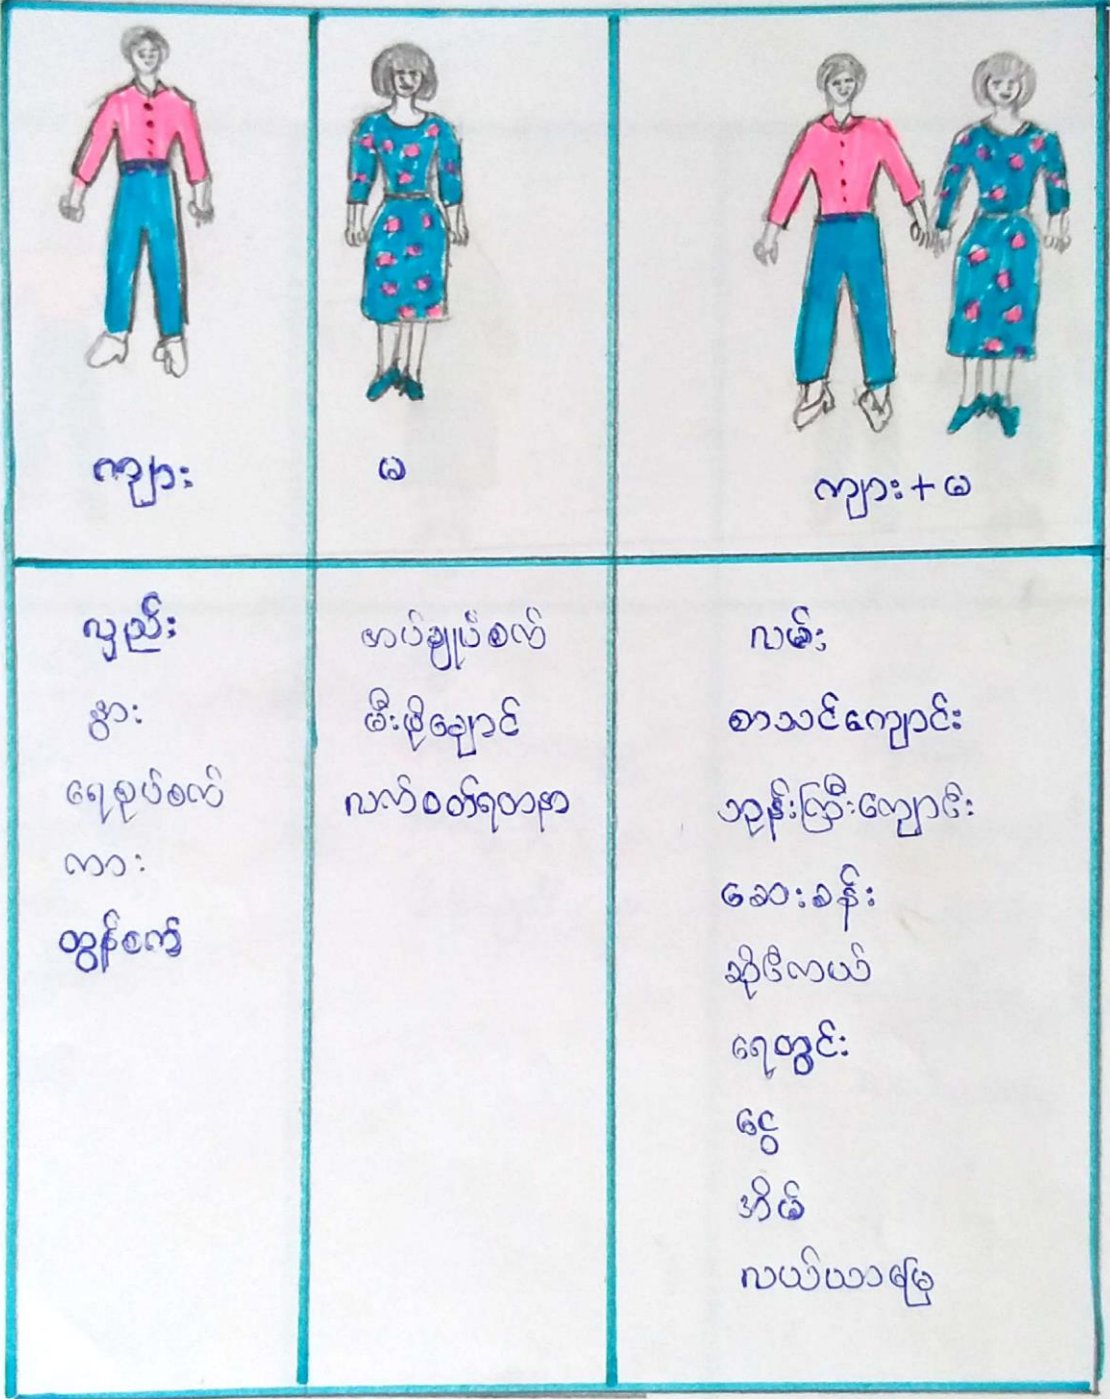 ကျား
မ
ကျား+မ
လှည်း
နွား
ရေစုပ်စက်
ကား
ထွန်စက်
အပ်ချုပ်စက်
မီးဖိုချောင်
လက်ဝတ်ရတနာ
လမ်း
စာသင်ကျောင်း
ဘုန်းကြီးကျောင်း
ဆေးခန်း
ဆိုင်ကယ်
ရေတွင်း
ငွေ
အိမ်
လယ်ယာမြေ